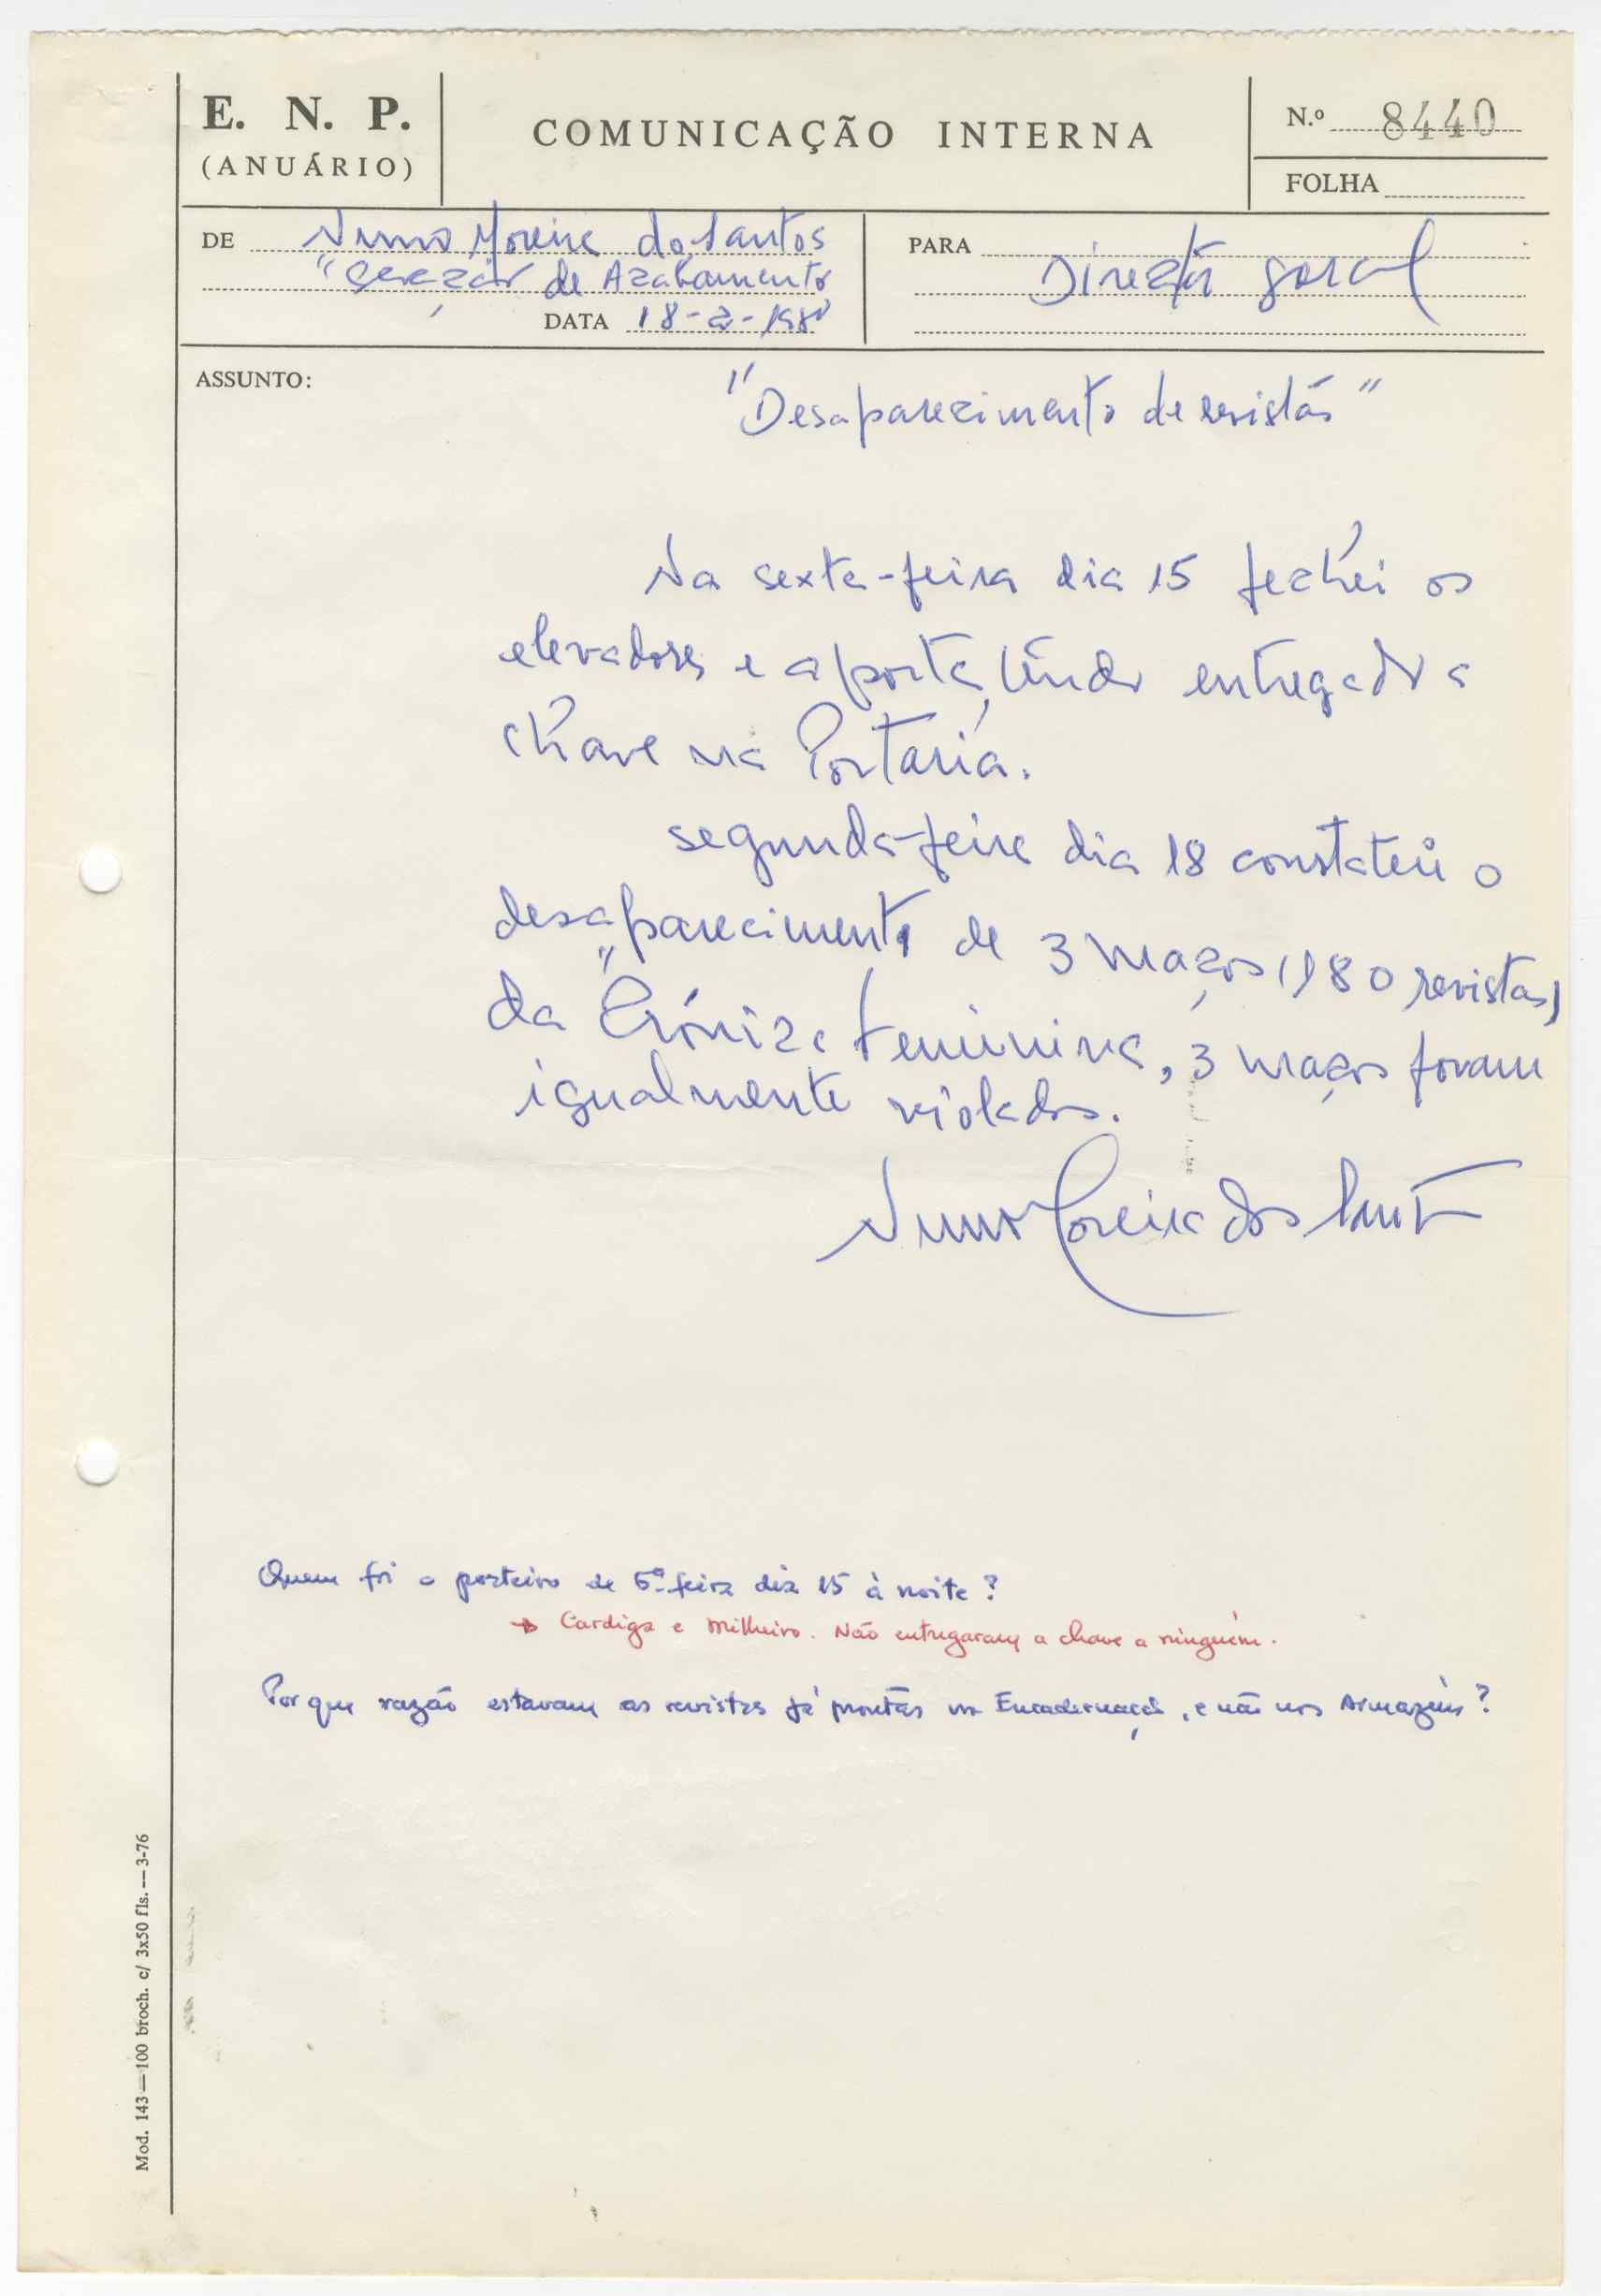 E. N. P.
(ANUÁRIO)
COMUNICAÇÃO INTERNA
N.º 8440
FOLHA
DE Nuno Moreira dos Santos
"Secção de Acabamento
DATA 18-2-1980
PARA
Director geral
ASSUNTO:
"Desaparecimento de revistas"
Na sexta-feira dia 15 fechei os
elevadores e a porta, tendo entregado a
chave na Portaria.
segunda-feira dia 18 constatei o
desaparecimento de 3 maços (180 revistas)
da "Crónica Feminina, 3 maços foram
igualmente violados.
Nuno Moreira dos Santos
Quem foi o porteiro de 6ª feira dia 15 à noite?
→ Cardiga e Milheiro. Não entregaram a chave a ninguém.
Por que razão estavam as revistas já prontas na Encadernação, e não nos Armazéns?
Mod. 143 — 100 broch. c/ 3x50 fls. — 3-76